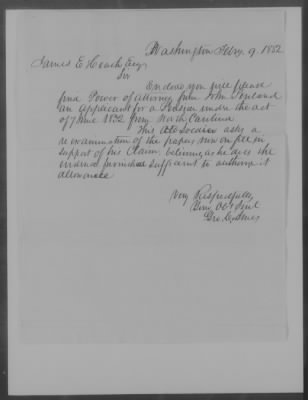 Washington Feby. 9. 1852
James E Heath Esq
Sir
Enclosed you will please
find Power of attorney from John
an applicant for a Pension under the act
of 7 June 1832 from North Carolina
This Old Soldier asks a
reexamination of the papers now on file in
support of his Claim, believing as he does the
evidence furnished sufficient to authorize it
allowance
Very Respectfully
Your Obt Svt
Geo.